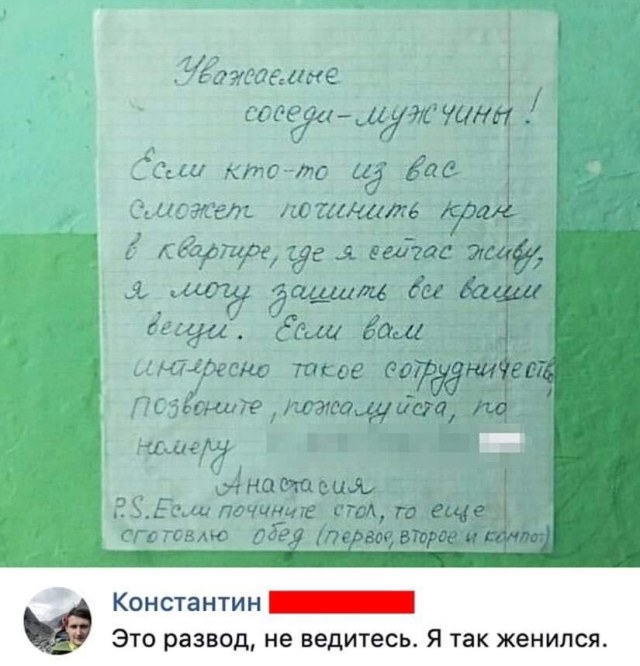 Уважаемые
соседи-мужчины!
Если кто-то из вас
сможет починить кран
в квартире, где я сейчас живу,
я могу зашить все ваши
вещи. Если вам
интересно такое сотрудничество,
позвоните, пожалуйста, по
номеру
Анастасия
P.S. Если почините стол, то еще
сготовлю обед (первое, второе и компот)
Константин
Это развод, не ведитесь. Я так женился.